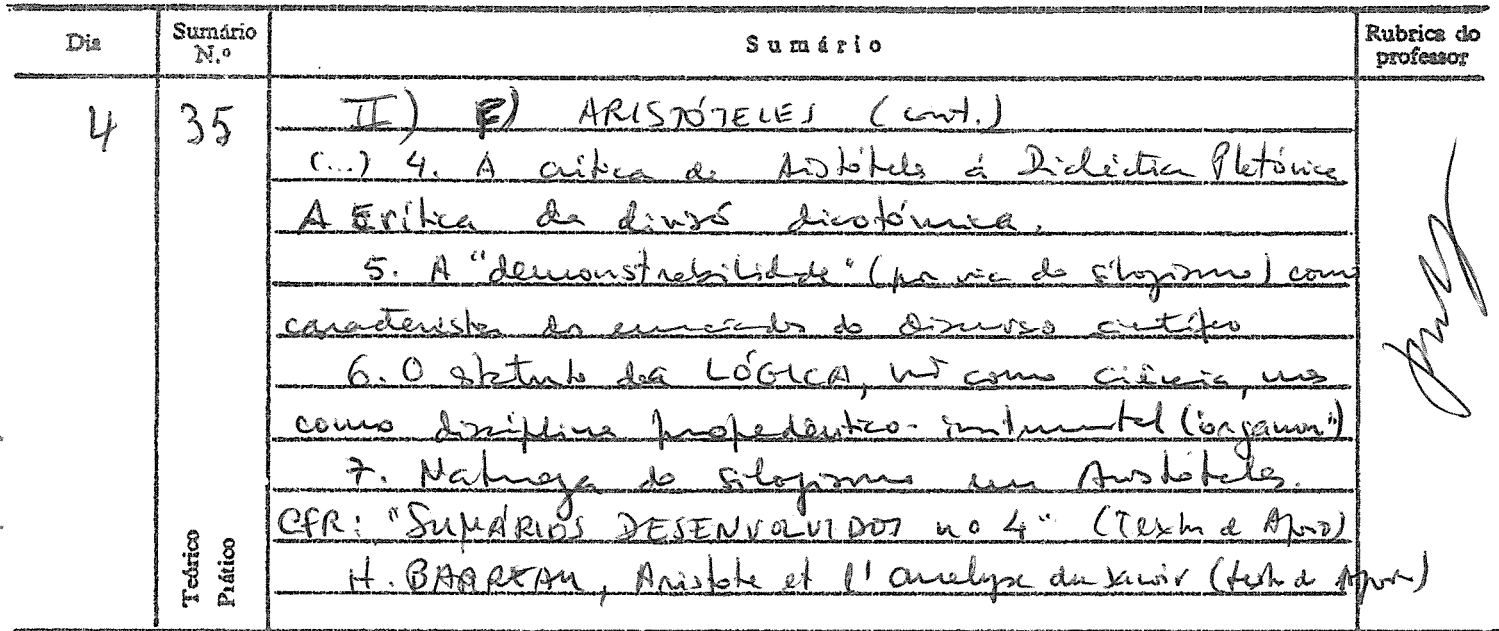 Dia Sumário N.º Sumário Rubrica do professor
4 35 II) F) ARISTÓTELES (cont.)
(...) 4. A crítica de Aristóteles à Dialéctica Platónica
A Crítica da divisó dicotómica.
5. A "demonstrabilidade" (por via do silogismo) como
característica dos enunciados do discurso científico
6. O estatuto da LÓGICA, não como ciência, mas
como disciplina propedêutico-instrumental ("órganon")
7. Natureza do silogismo em Aristóteles.
CFR: "SUMÁRIOS DESENVOLVIDOS nº 4" (Texto de Apoio)
H. BARREAU, Aristote et l'analyse du savoir (texto de Apoio)
Teórico
Prático